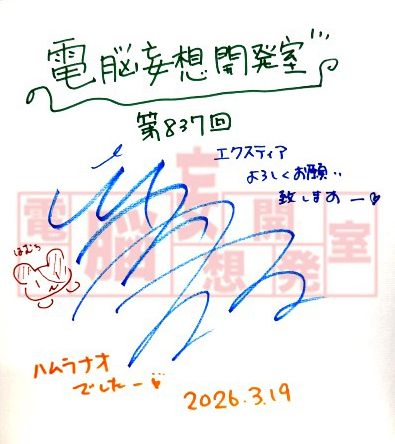 電脳妄想開発室
第837回
エクスティア
よろしくお願い
致しまぁー
はむら
電脳妄想開発室
ハムラナオ
でしたー
2026.3.19